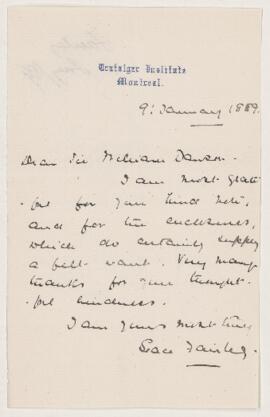 Trafalgar Institute
Montreal.
9: January 1889.
Dear Sir William Dawson.
I am most grate
-ful for your kind note,
and for the enclosures,
which do certainly supply
a felt want. Very many
thanks for your thought-
-ful kindness.
I am yours most truly
Grace Fairley.